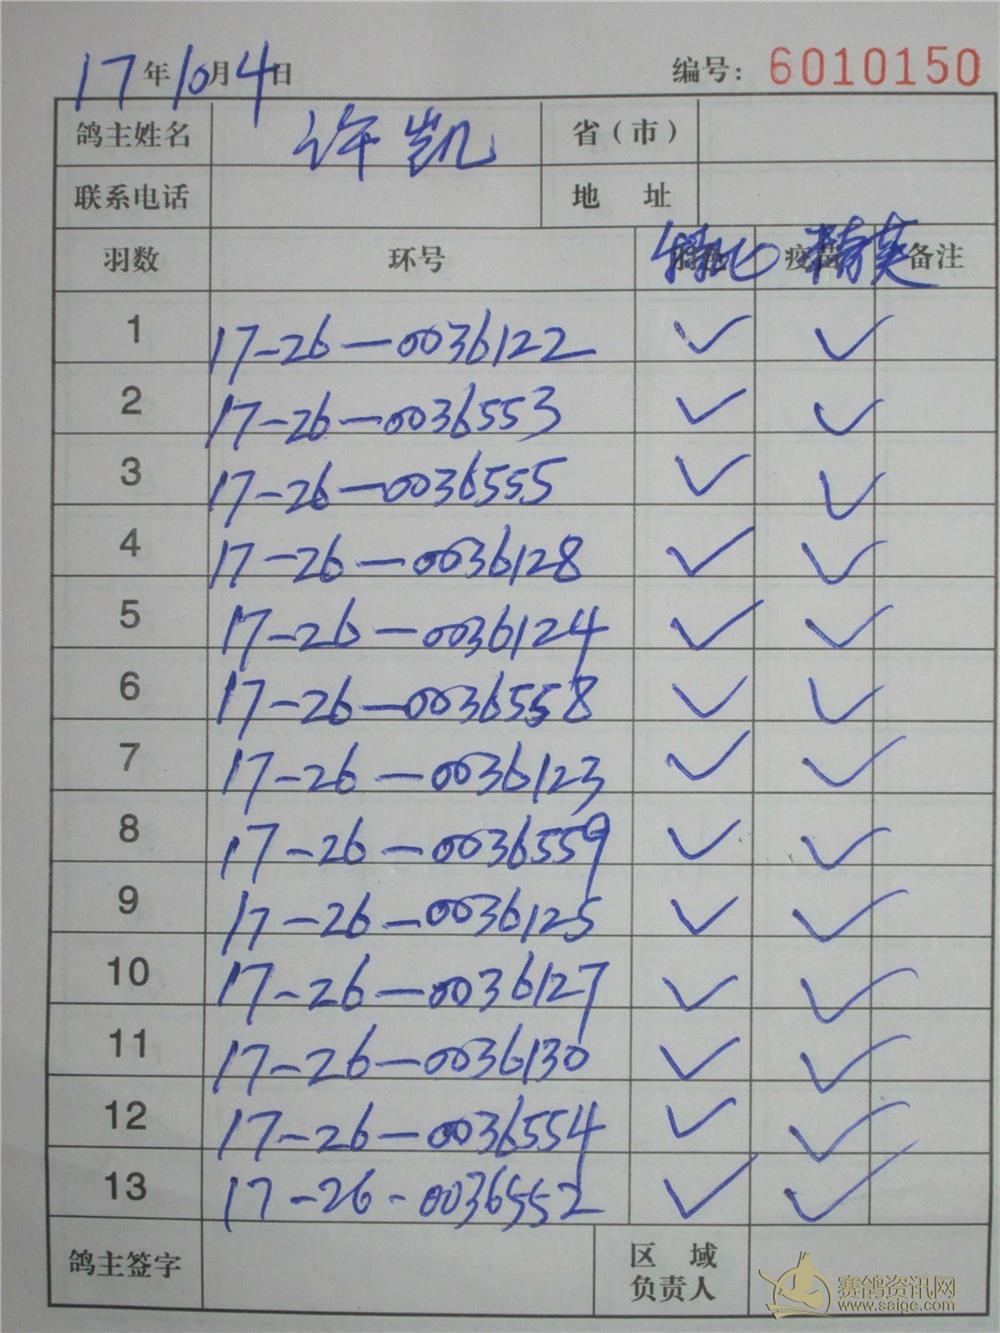 17年10月4日 编号: 6010150
鸽主姓名 许凯 省(市)
联系电话 地 址
羽数 环号 特比 精英 备注
1 17-26-0036122 ✓ ✓
2 17-26-0036553 ✓ ✓
3 17-26-0036555 ✓ ✓
4 17-26-0036128 ✓ ✓
5 17-26-0036124 ✓ ✓
6 17-26-0036558 ✓ ✓
7 17-26-0036123 ✓ ✓
8 17-26-0036559 ✓ ✓
9 17-26-0036125 ✓ ✓
10 17-26-0036127 ✓ ✓
11 17-26-0036130 ✓ ✓
12 17-26-0036554 ✓ ✓
13 17-26-0036552 ✓ ✓
鸽主签字 区 域
负责人
赛鸽资讯网
www.saigc.com